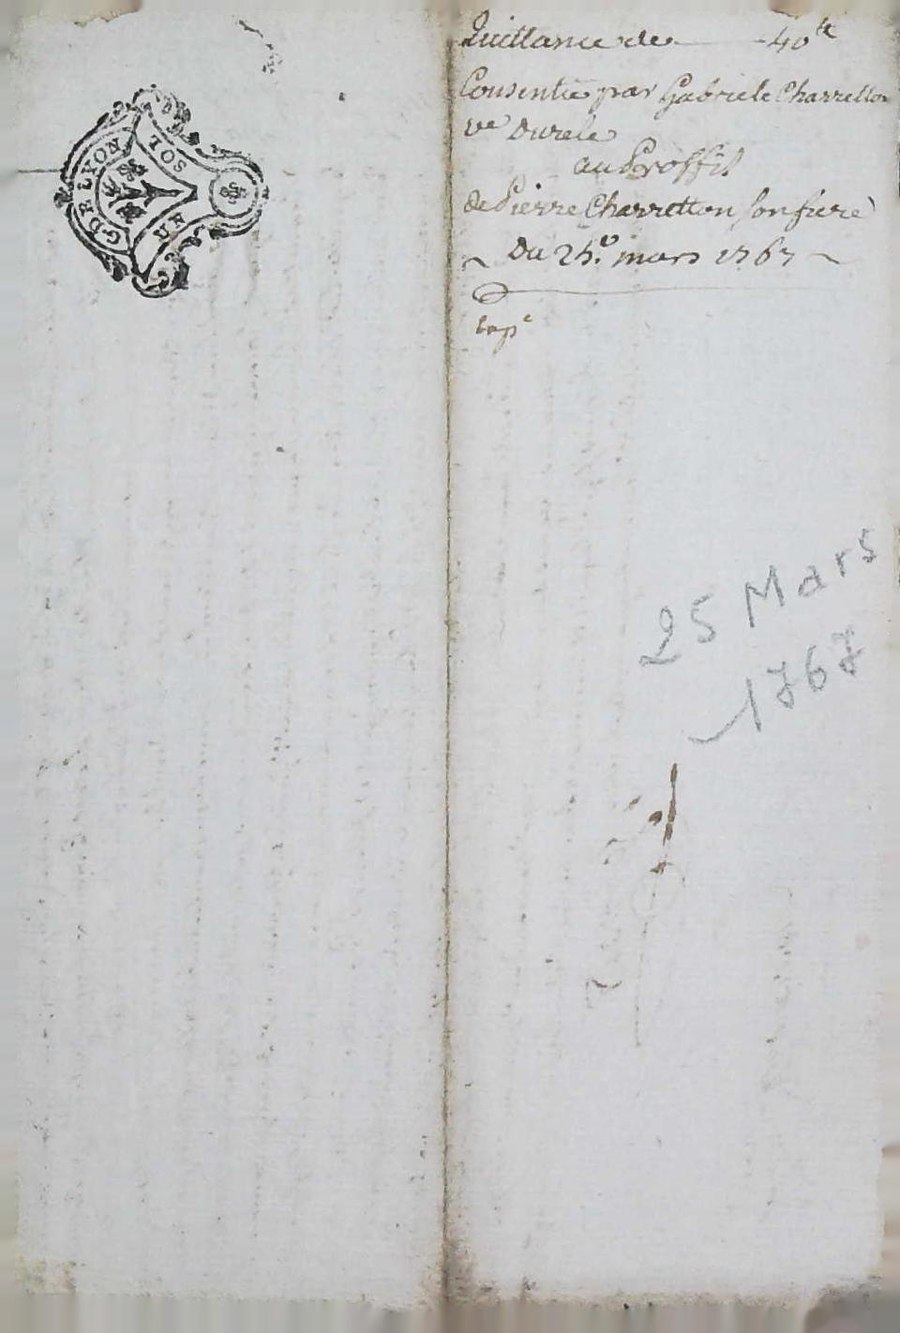 G DE LYON
DEUX SOLS
Quittance de 40 tt
Consentie par Gabriele Charretton
ve Durele
au Proffit
de Pierre Charretton son frere
Du 25e mars 1767
Exp e
25 Mars
1767